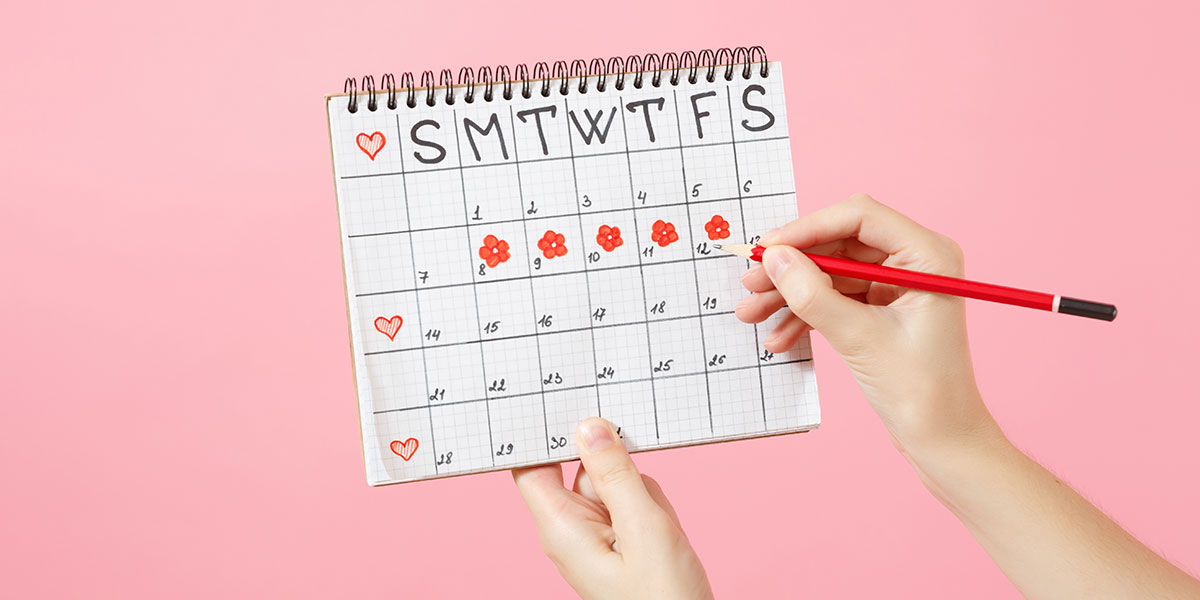 S M T W T F S
1 2 3 4 5 6
7 8 9 10 11 12
14 15 16 17 18 19
21 22 23 24 25 26 27
28 29 30